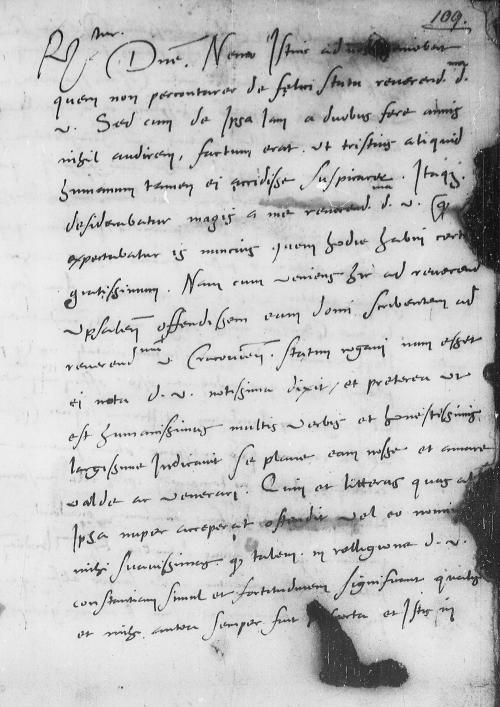 109.
Dne. Nemo Istinc ad nos
quem non percontarer de felici statu reverend. d.
v. Sed cum de Ipsa Iam a duobus fere annis
nihil audirem. factum erat. ut tristius aliquid
humanum tamen ei accidisse suspicarer. Itaq3.
desiderabatur magis a me reverend. d. v.
expectabatur is nuncius quem hodie habui
gratissimum. Nam cum veniens huc ad reverend
Upsalen offendissem eam domi scribentem ad
reverend v Cracovien. statim rogavi num esset
ei nota d. v. notissima dixit, et preterea ut
est humanissimus multis verbis et honestissimis
largissime Indicavit se plane eam nosse et amare
valde ac venerari. Cum et litteras quas ab
Ipsa nuper acceperat ostendit vel eo nomine
mihi suavissimas q talem in relligione d. v.
constantiam simul et fortitudinem significant qualis
et mihi antea semper fuit et Istis in